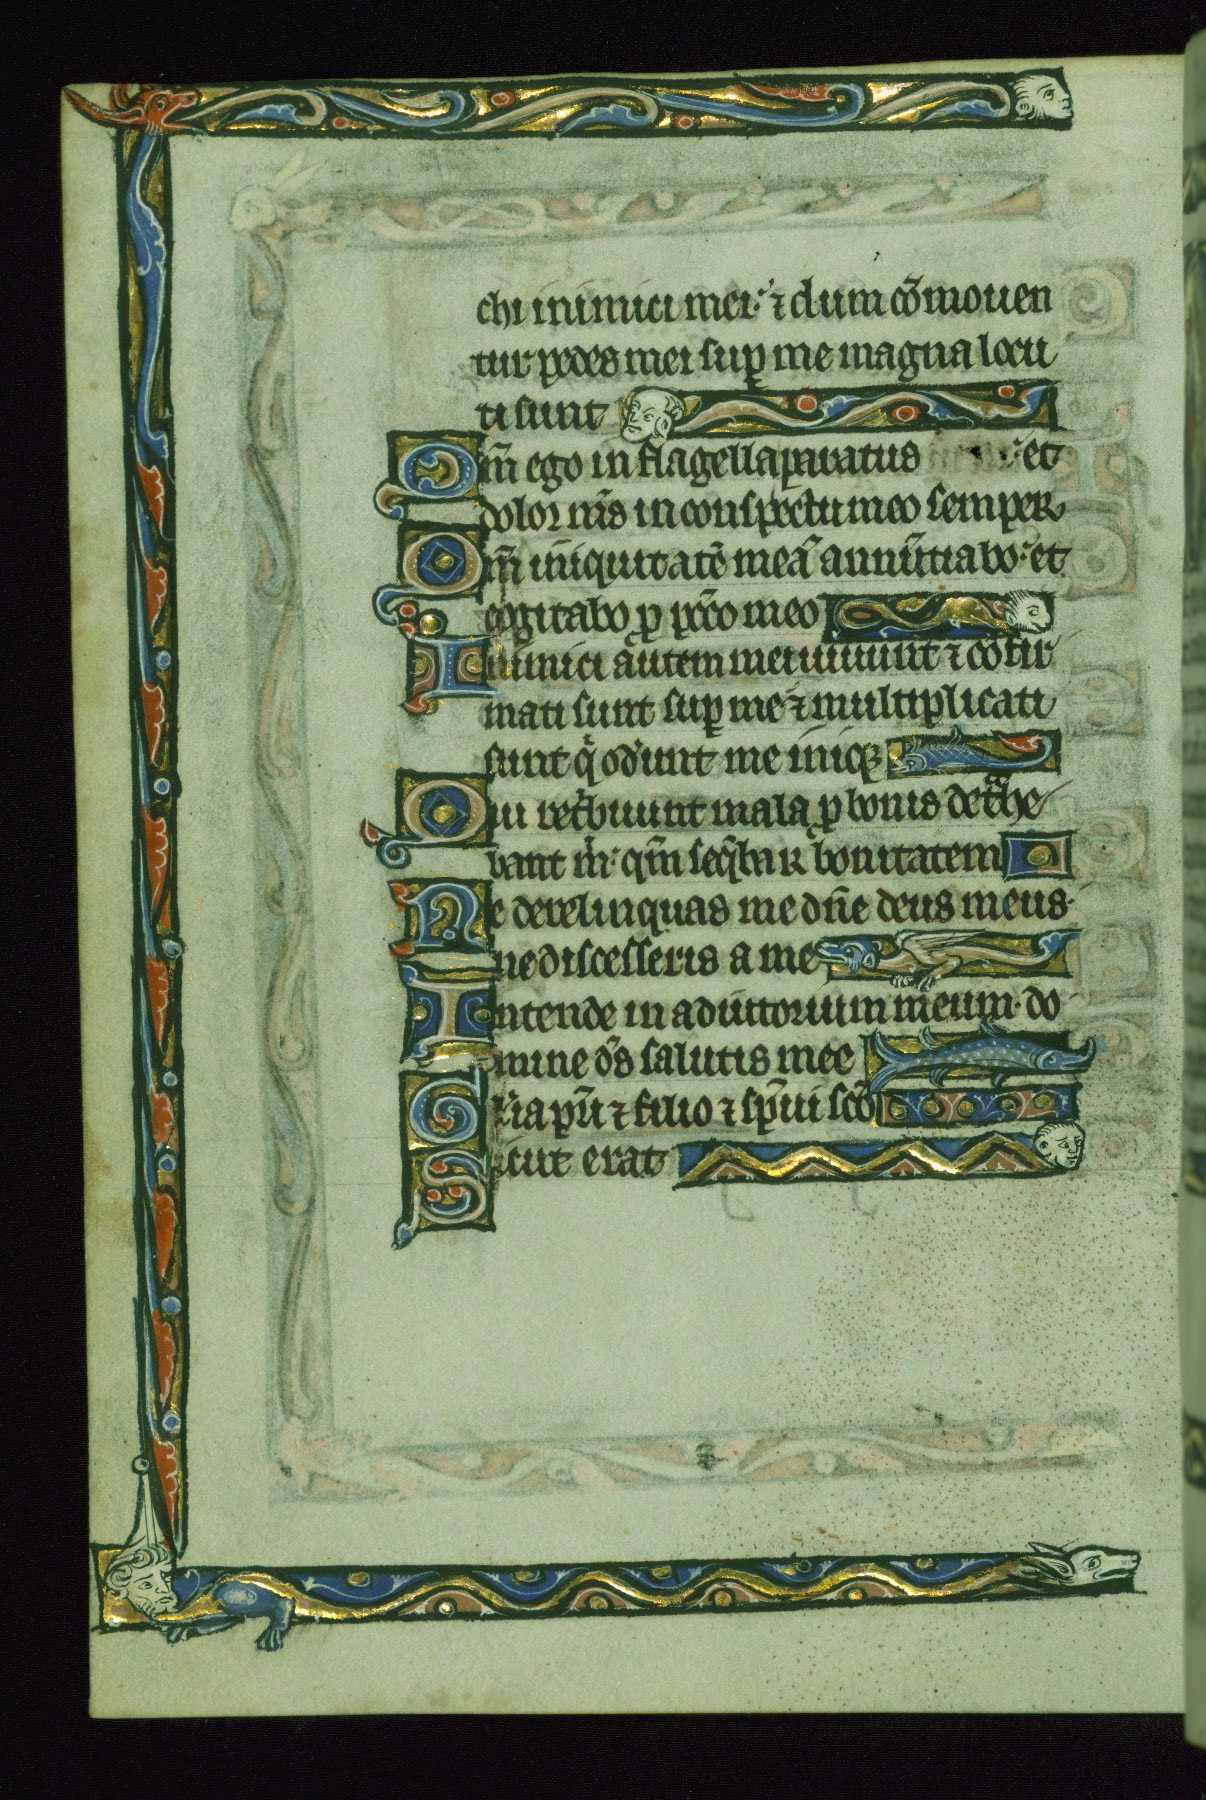 chi inimici mei · ⁊ dum cōmouen
tur pedes mei suꝑ me magna locu
ti sunt
Qm̄ ego in flagella paratus et
dolor m̄s in conspectu meo semper
Qm̄ iniquitatē meā annūtiabo · et
cogitabo ꝓ pccō meo
Inimici autem mei uiuunt ⁊ cōfir
mati sunt suꝑ me ⁊ multiplicati
sunt q̄ oderunt me iniq̄
Qui ret̄buunt mala ꝓ bonis det̃he
bant m̄ · qm̄ seq̄bar bonitatem
Ne derelinquas me dn̄e deus meus ·
ne discesseris a me
Intende in adiutorium meum · do
mine ds̄ salutis mee
Gl̄ia pr̄i ⁊ filio ⁊ sp̄ui scō
Sicut erat